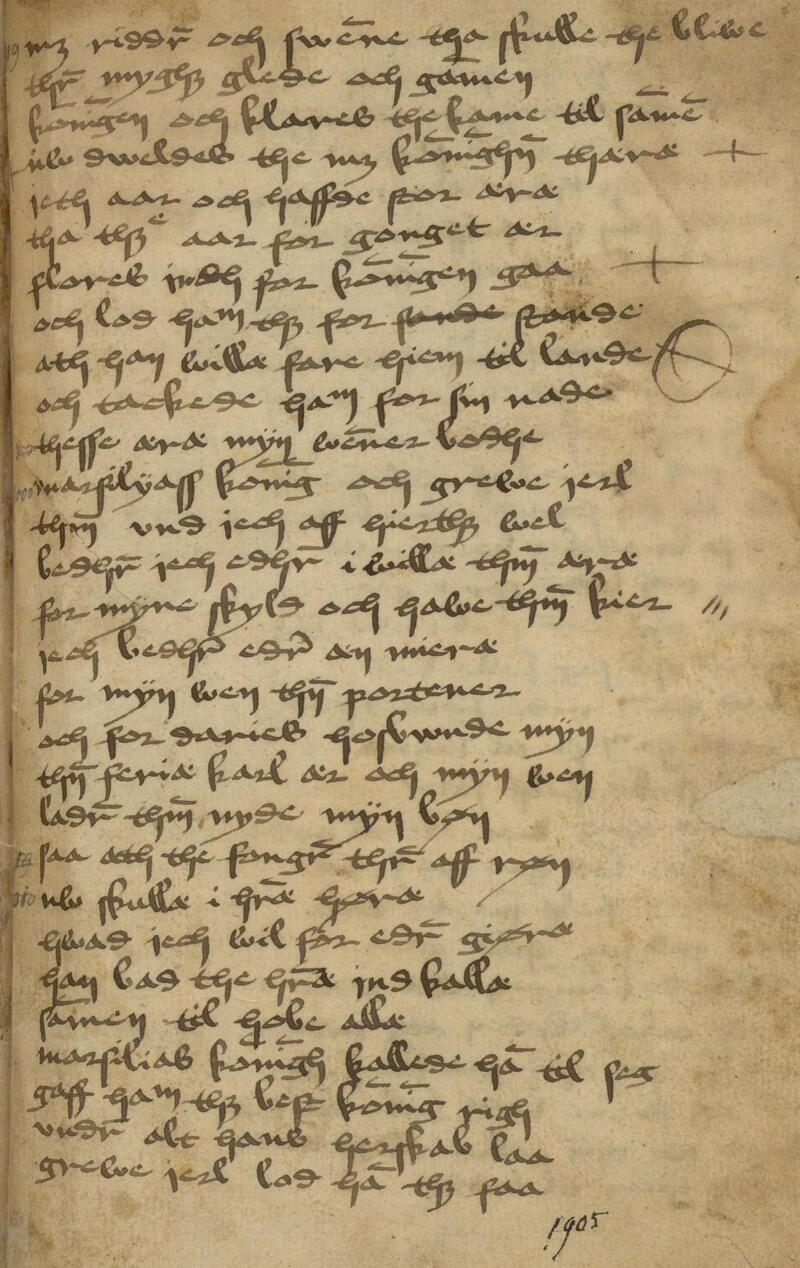 mz riddr̄ och swēne tha skulle the bliwe
thr̄ myghz glede och gāmen
kōnīgen och klares the kame til sāmē
nw dweldes the mz kōnīghn̄ thæræ +
jeth aar och haffde stor æræ
tha thz e aar for gonget ær
flores indh for kōnīgen gaa +
och lod ham thz for stande
ath han willæ fare hiem til lande
och tackede ham for sin nade
thesse æræ myn wēner bodhe
marsilyass kōnīg och grewe jerl
thm̄ vnd jech aff hierthz wel
bedhr̄ jech edhr̄ i willæ thm̄ æræ
for myne skyld och hawe thm̄ kier //,
jech bedhr̄ edr̄ æn mieræ
for myn wen thn̄ portener
och for daries hosbwnde myn
thn̄ feriæ karl ær och myn wen
ladr̄ thm̄ nyde myn bøn
saa ath the fongr̄ thr̄ aff røn
nw skullæ i hr̄æ høræ
hwad jech wil for edr̄ giøræ
han bad the hr̄æ ind kallæ
sāmen til hobe allæ
marsilias kōnīgh kallede hā til seg
gaff ham thz best kōnīg righ
vndr̄ alt hans herskab laa
grewe jerl lod hā thz faa
1905